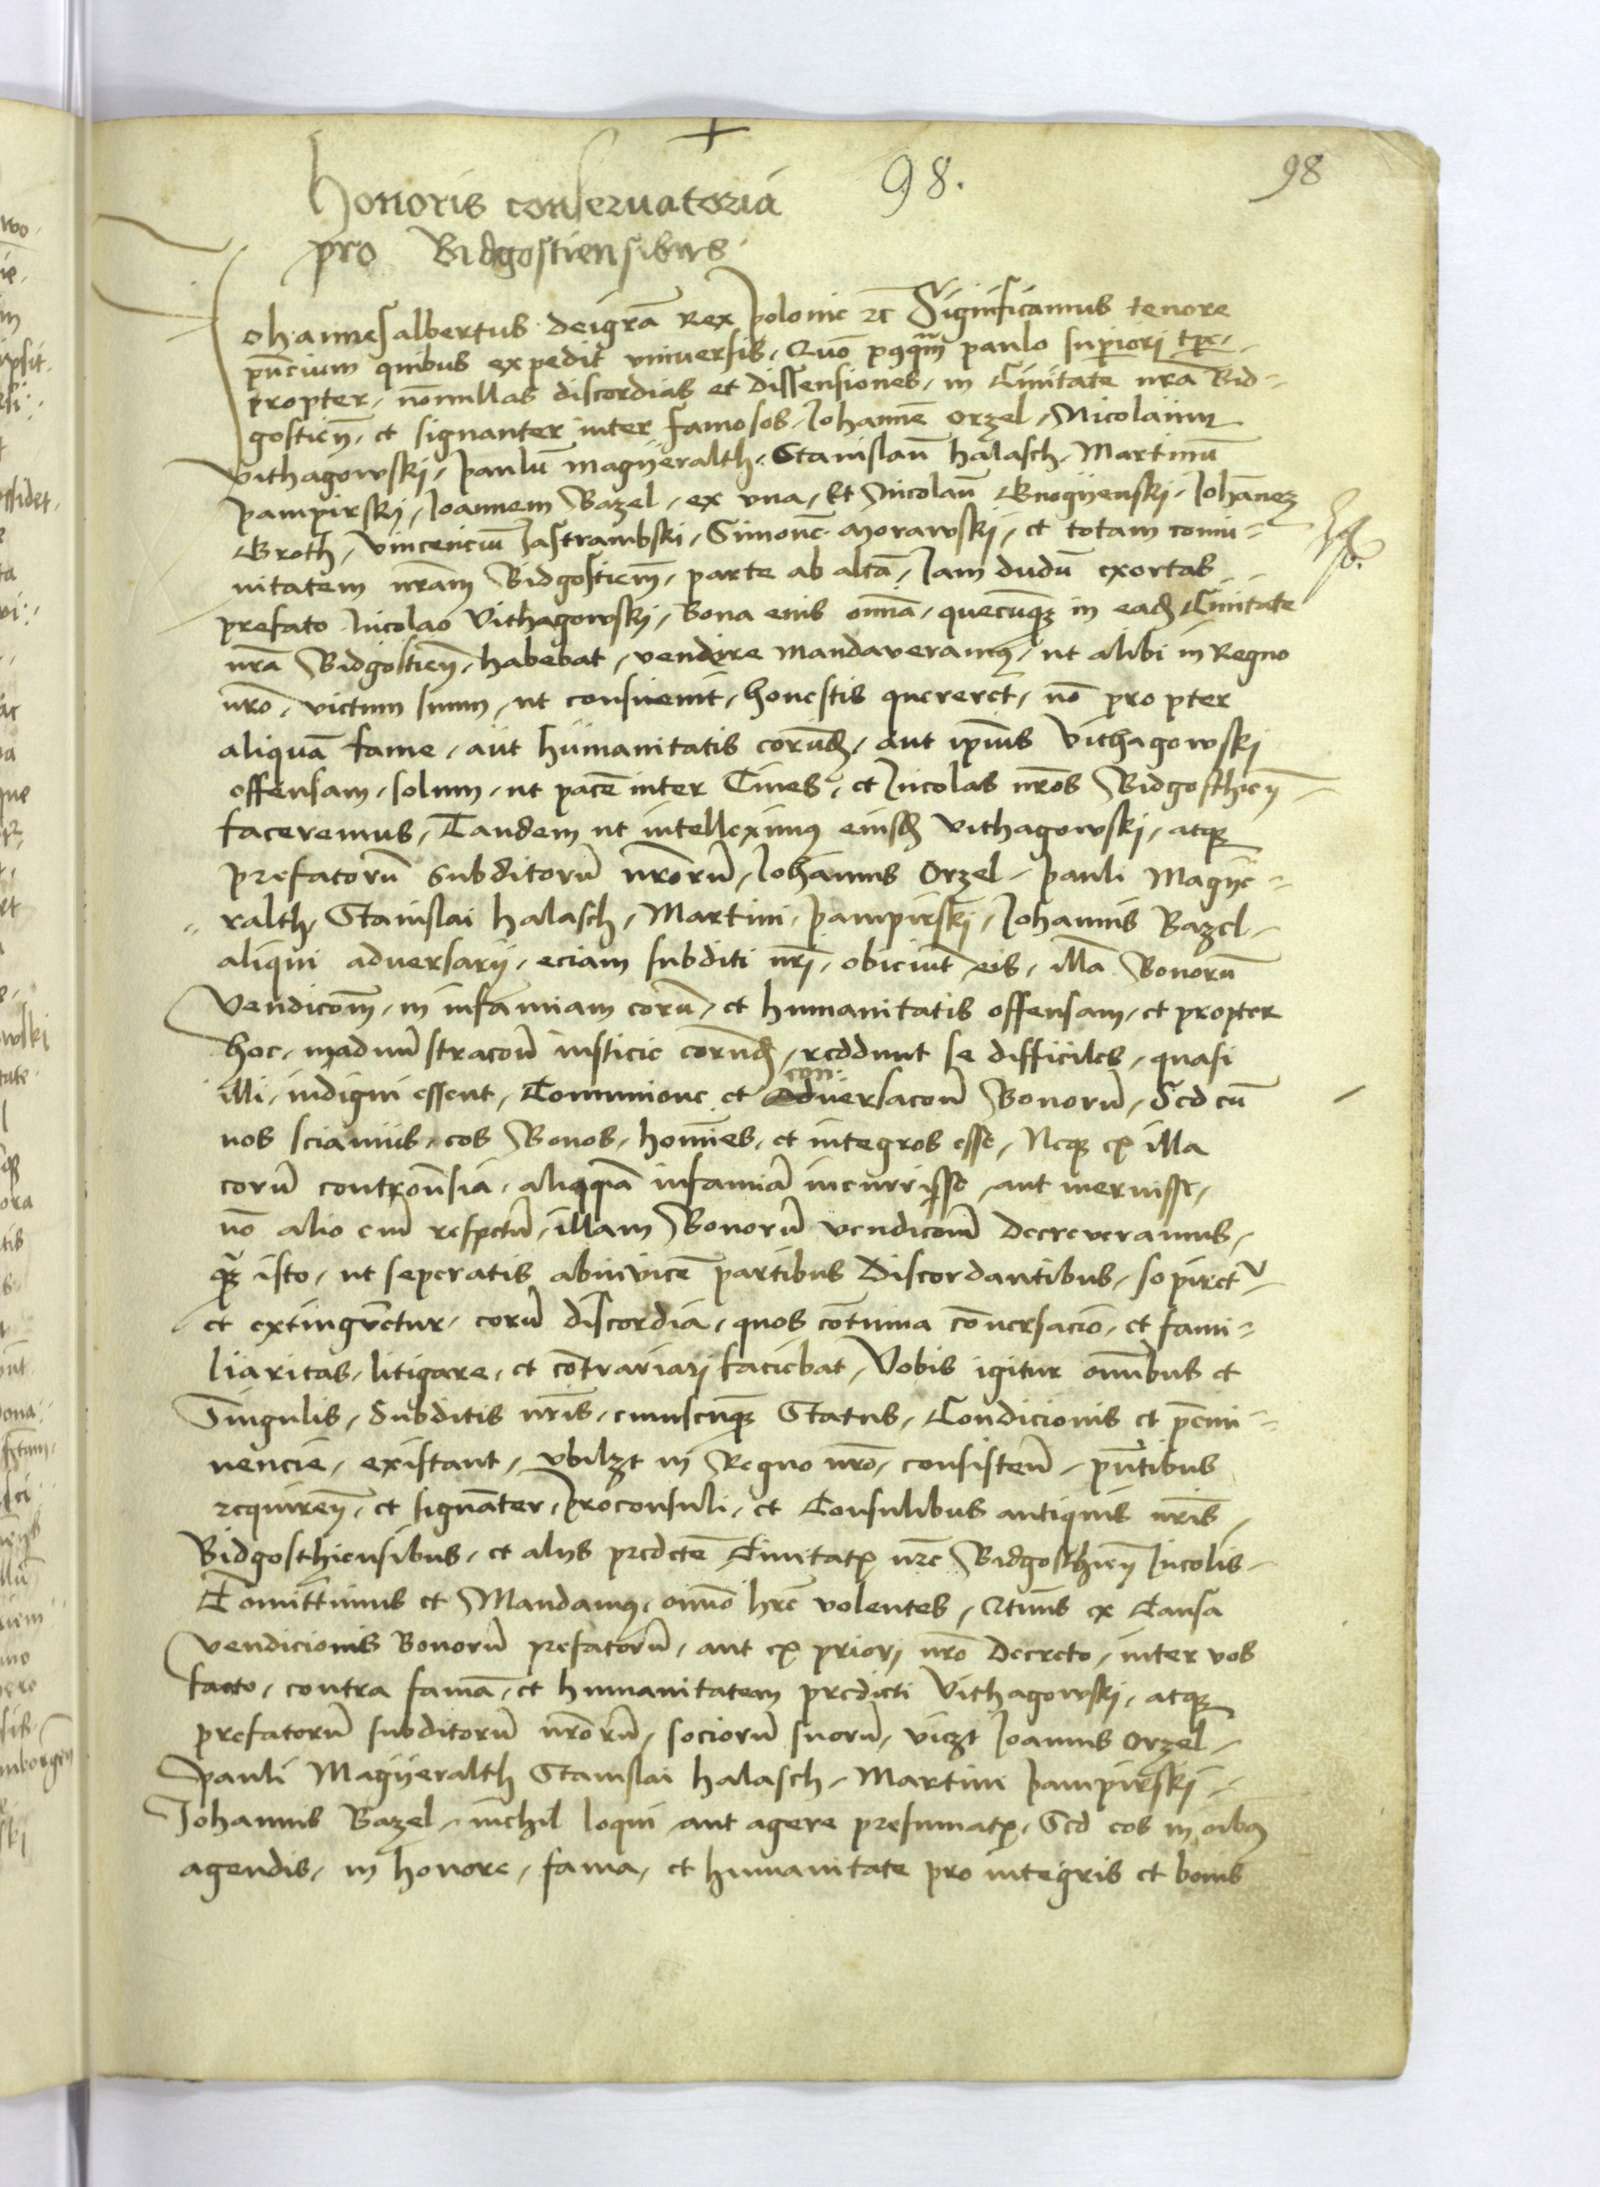 98.
98
Honoris conservatoria
pro Bidgostiensibus
Johannes albertus deigra Rex polonie zc Significamus tenore
pncium quibus expedit universis, Quo pqqm paulo superiori tpe,
propter, nonullas discordias et dissensiones, in Civitate nra Bid=
gostien, et signanter inter famosos, Johanne Orzel, Nicolaum
Vithagowski, paulu magyeralth, Stanislau halasch, Martinu
pampirski, Joannem Bazel, ex una, Et Nicolau Gnogyenski, Johanez
Groth, Vincenciu Jastrambski, Simone Morawski, et totam comu=
nitatem nram Bidgostiem, parte ab alta, Jam dudu exortas
prefato Nicolao Vithagowski, Bona eius omia, quecuqz in ead Civitate
nra Bidgostien, habebat, vendire mandaveramus, ut alibi in Regno
nro, victum suum, ut consuevit, honestis quereret, no propter
aliqua fame, aut humanitatis eorund, aut ipius Vithagowski
offensam, solum, ut pace inter Cives, et Incolas nros Bidgosthien
faceremus, Tandem ut intelleximus eiusd Vithagowski, atqz
prefatoru subditoru nroru, Johannis Orzel, pauli Magye=
ralth, Stanislai halasch, Martini, pampirski, Johannis Bazel,
aliqui adversarij, eciam subditi nri, obiciut eis, illa Bonoru
vendicom, in infamiam eoru, et humanitatis offensam, et propter
hoc, in adminstracoe iusticie eorund, reddunt se difficiles, quasi
illi, indigni essent, Communione et con: adversacoe Bonoru, Sed cu
nos sciamus, eos Bonos, homies, et integros esse, Neqz ex illa
eoru controusia, aliqua infamia incurrisse aut meruisse,
no alio em respectu, illam Bonoru vendicoem decreveramus,
qz isto, ut seperatis abinvice partibus Discordantibus, sopiret
et extingvetur, eoru discordia, quos cotinua coversacio, et fami=
liaritas, litigare, et cotrariari faciebat, Vobis igitur omibus et
Singulis, Subditis nris, cuiuscuqz Status, Condicionis et pemi=
nencie, existant, ubilzt in Regno nro, consisten, pntibus
requiren, et signater, Proconsuli, et Consulibus antiquis nris,
Bidgosthiensibus, et alijs predcte Civitatis nre Bidgosthien Incolis,
Comittimus et Mandamus, omno hre volentes, Qtinus ex Causa
vendicionis Bonoru prefatoru, aut ex priori nro Decreto, inter vos
facto, contra fama, et humanitatem predicti Vithagowski, atqz
prefatoru subditoru nroru, socioru suoru, viczt Joannis Orzel,
Pauli Magyeralth Stanislai halasch, Martini Pampirski,
Johannis Bazel, nichil loqui aut agere presumatis, Sed eos in oibus
agendis, in honore, fama, et humanitate pro integris et bonis